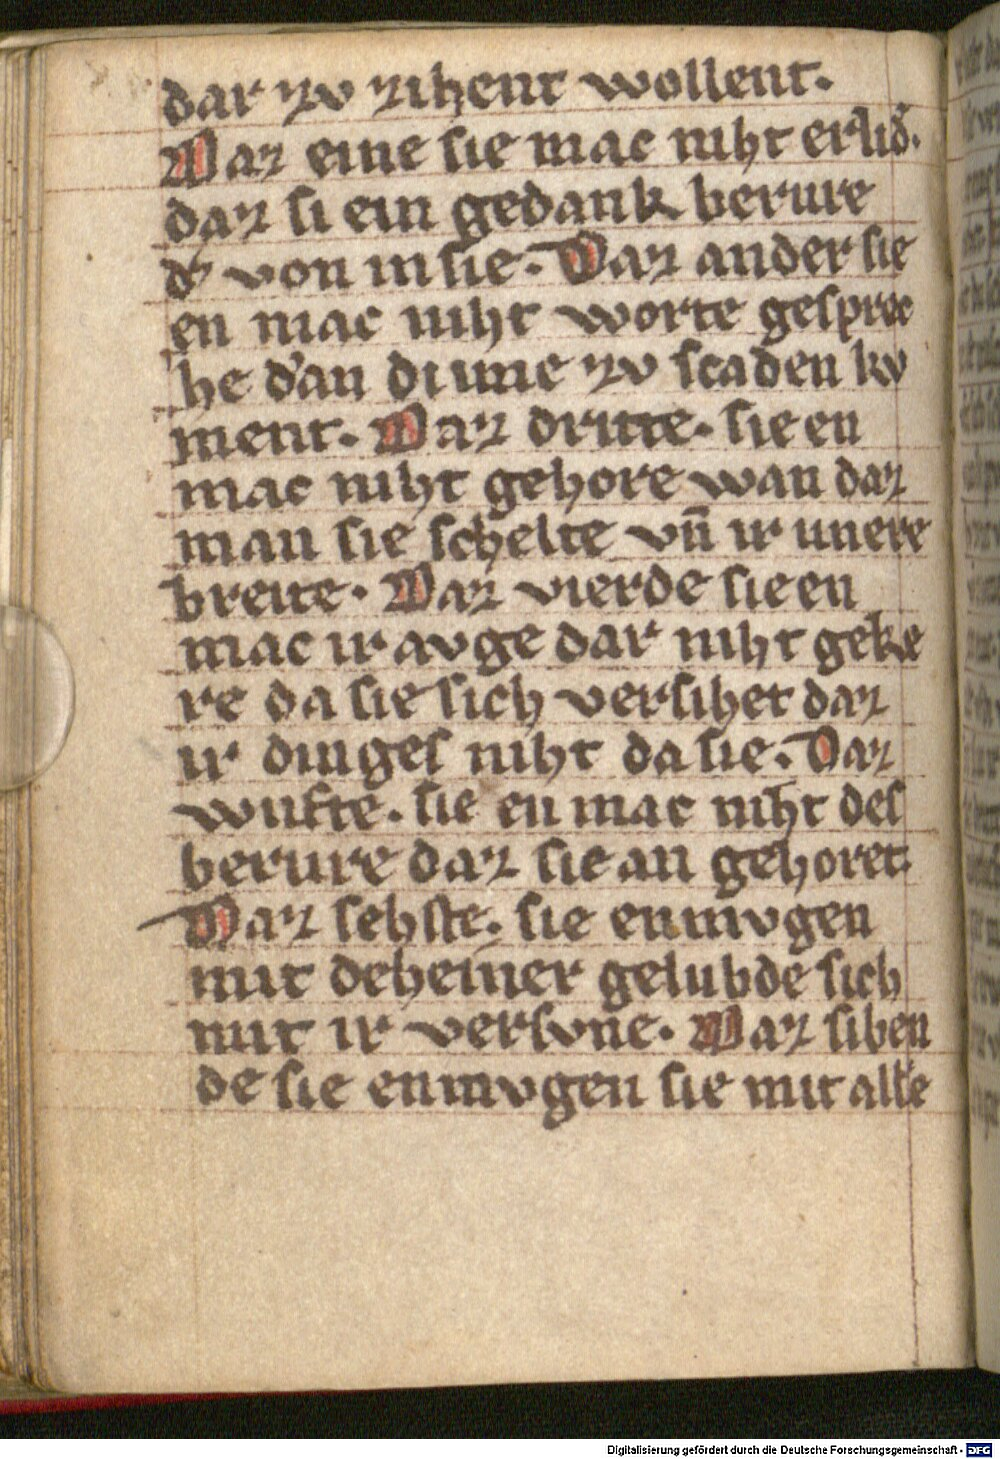 dar zv zihent wollent.
Daz eine sie mac niht erlid̛.
daz si ein gedank berure
d̛ von in sie. Daz ander sie
en mac niht worte gesprec
he d̛an di une zv scaden kv
ment. Daz dritte. sie en
mac niht gehore wan daz
man sie schelte vn̄ ir unere
breite. Daz vierde sie en
mac ir avge dar niht geke
re da sie sich versihet daz
ir dinges niht da sie. Daz
wnfte. sie en mac niht des
berure daz sie an gehoret.
Daz sehste. sie enmvgen
mit deheiner gelubde sich
mit ir versvne. Daz siben
de sie enmvgen sie mit alle
Digitalisierung gefördert durch die Deutsche Forschungsgemeinschaft - DFG